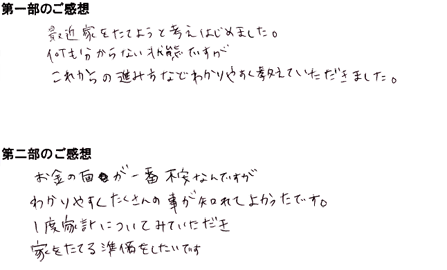 第一部のご感想
最近家をたてようと考えはじめました。
何も分からない状態ですが
これからの進み方などわかりやすく教えていただきました。
第二部のご感想
お金の面が一番不安なんですが
わかりやすくたくさんの事が知れてよかったです。
1度家計についてみていただき
家をたてる準備をしたいです